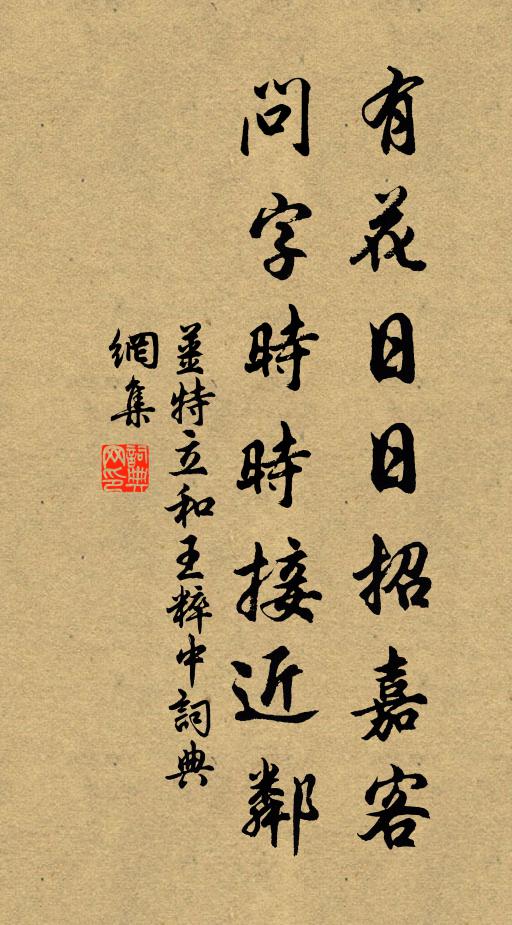 有花日日招嘉客
問字時時接近鄰
姜特立和王粹中詞典
網集
詞典
网印